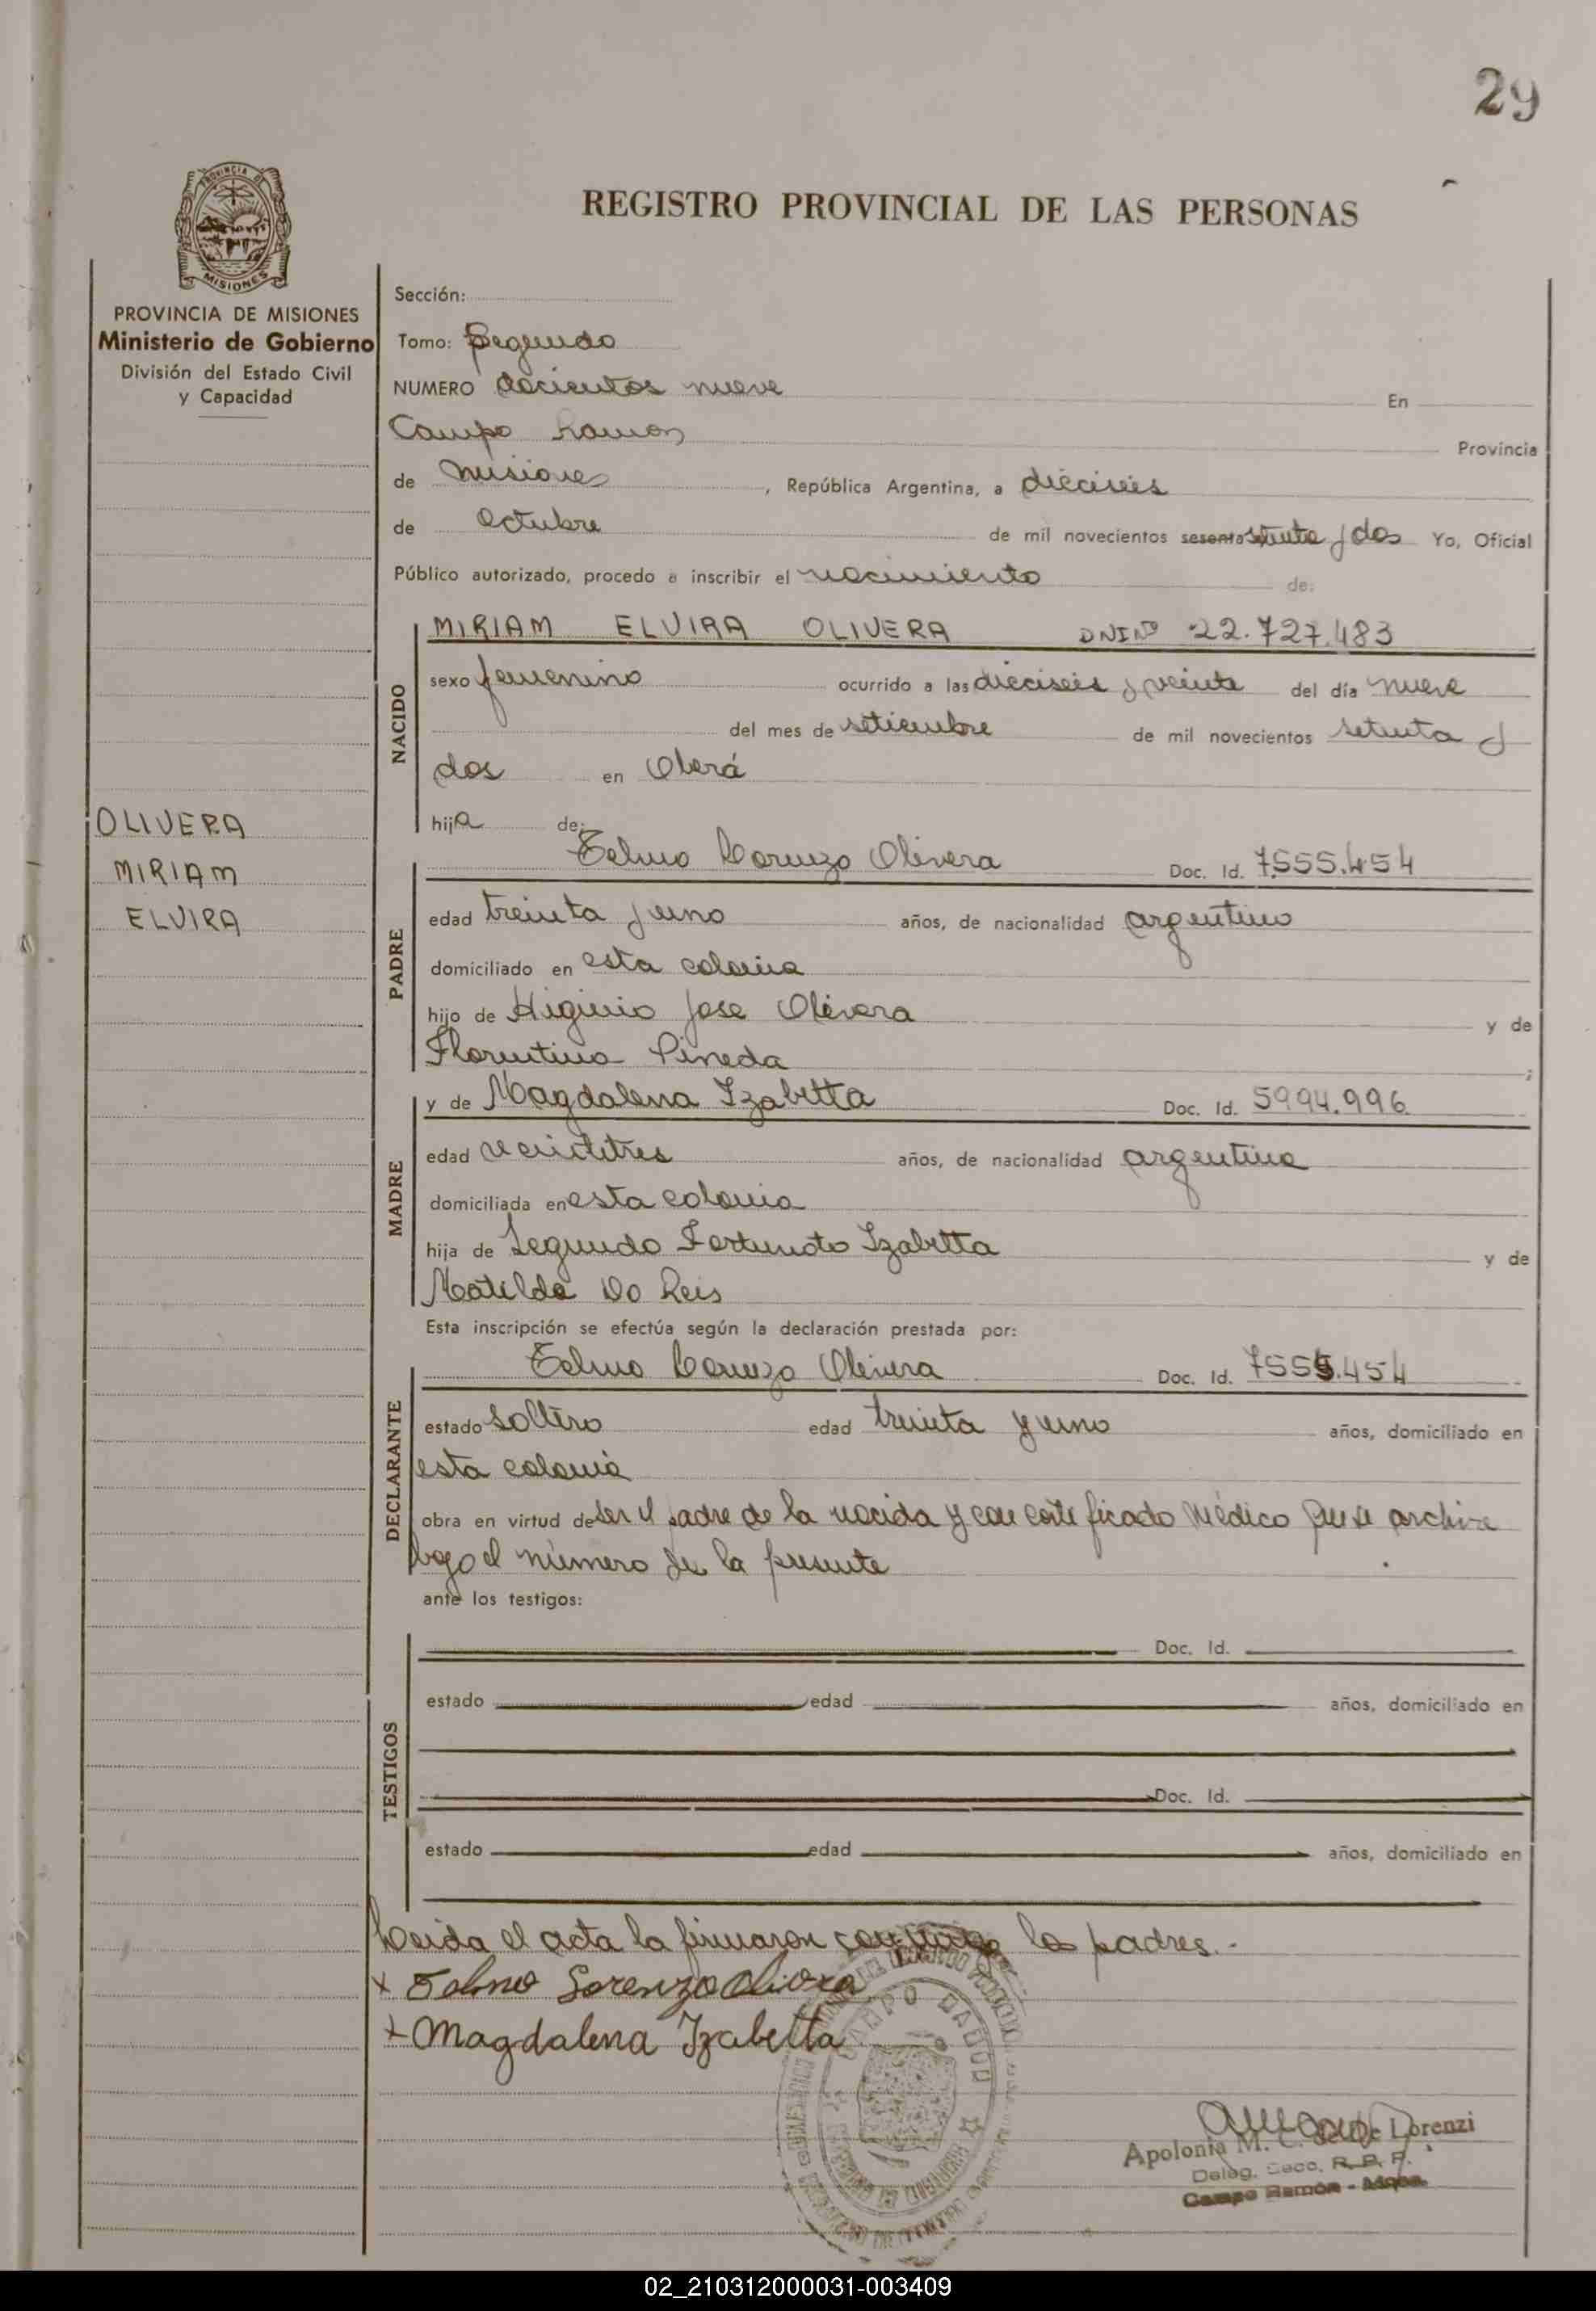 29
REGISTRO PROVINCIAL DE LAS PERSONAS
PROVINCIA DE
MISIONES
PROVINCIA DE MISIONES
Ministerio de Gobierno
División del Estado Civil
y Capacidad
OLIVERA
MIRIAM
ELVIRA
Sección:
Tomo: Segundo
NUMERO docientos nueve En
Campo Ramon Provincia
de Misiones, República Argentina, a dieciseis
de Octubre de mil novecientos sesenta setenta y dos Yo, Oficial
Público autorizado, procedo a inscribir el nacimiento de:
NACIDO
MIRIAM ELVIRA OLIVERA DNI Nº 22.727.483
sexo femenino ocurrido a las dieciseis y veinte del día nueve
del mes de setiembre de mil novecientos setenta y
dos en Oberá
hija de:
PADRE
Telmo Lorenzo Olivera Doc. Id. 7.555.454
edad treinta y uno años, de nacionalidad argentino
domiciliado en esta colonia
hijo de Higinio Jose Olivera y de
Florentina Pineda
MADRE
y de Magdalena Izabetta Doc. Id. 5994.996
edad veintitres años, de nacionalidad argentina
domiciliada en esta colonia
hija de Segundo Fortunato Izabetta y de
Matilde Do Reis
Esta inscripción se efectúa según la declaración prestada por:
DECLARANTE
Telmo Lorenzo Olivera Doc. Id. 7555.454
estado soltero edad treinta y uno años, domiciliado en
esta colonia
obra en virtud de ser el padre de la nacida y con certificado médico que se archiva
bajo el número de la presente
ante los testigos:
TESTIGOS
Doc. Id.
estado edad años, domiciliado en
Doc. Id.
estado edad años, domiciliado en
Leida el acta la firmaron conmigo los padres.-
x Telmo Lorenzo Olivera
x Magdalena Izabetta
Apolonia M. de Lorenzi
Deleg. Secc. R. P. P.
Campo Ramón - Mnes.
02_210312000031-003409